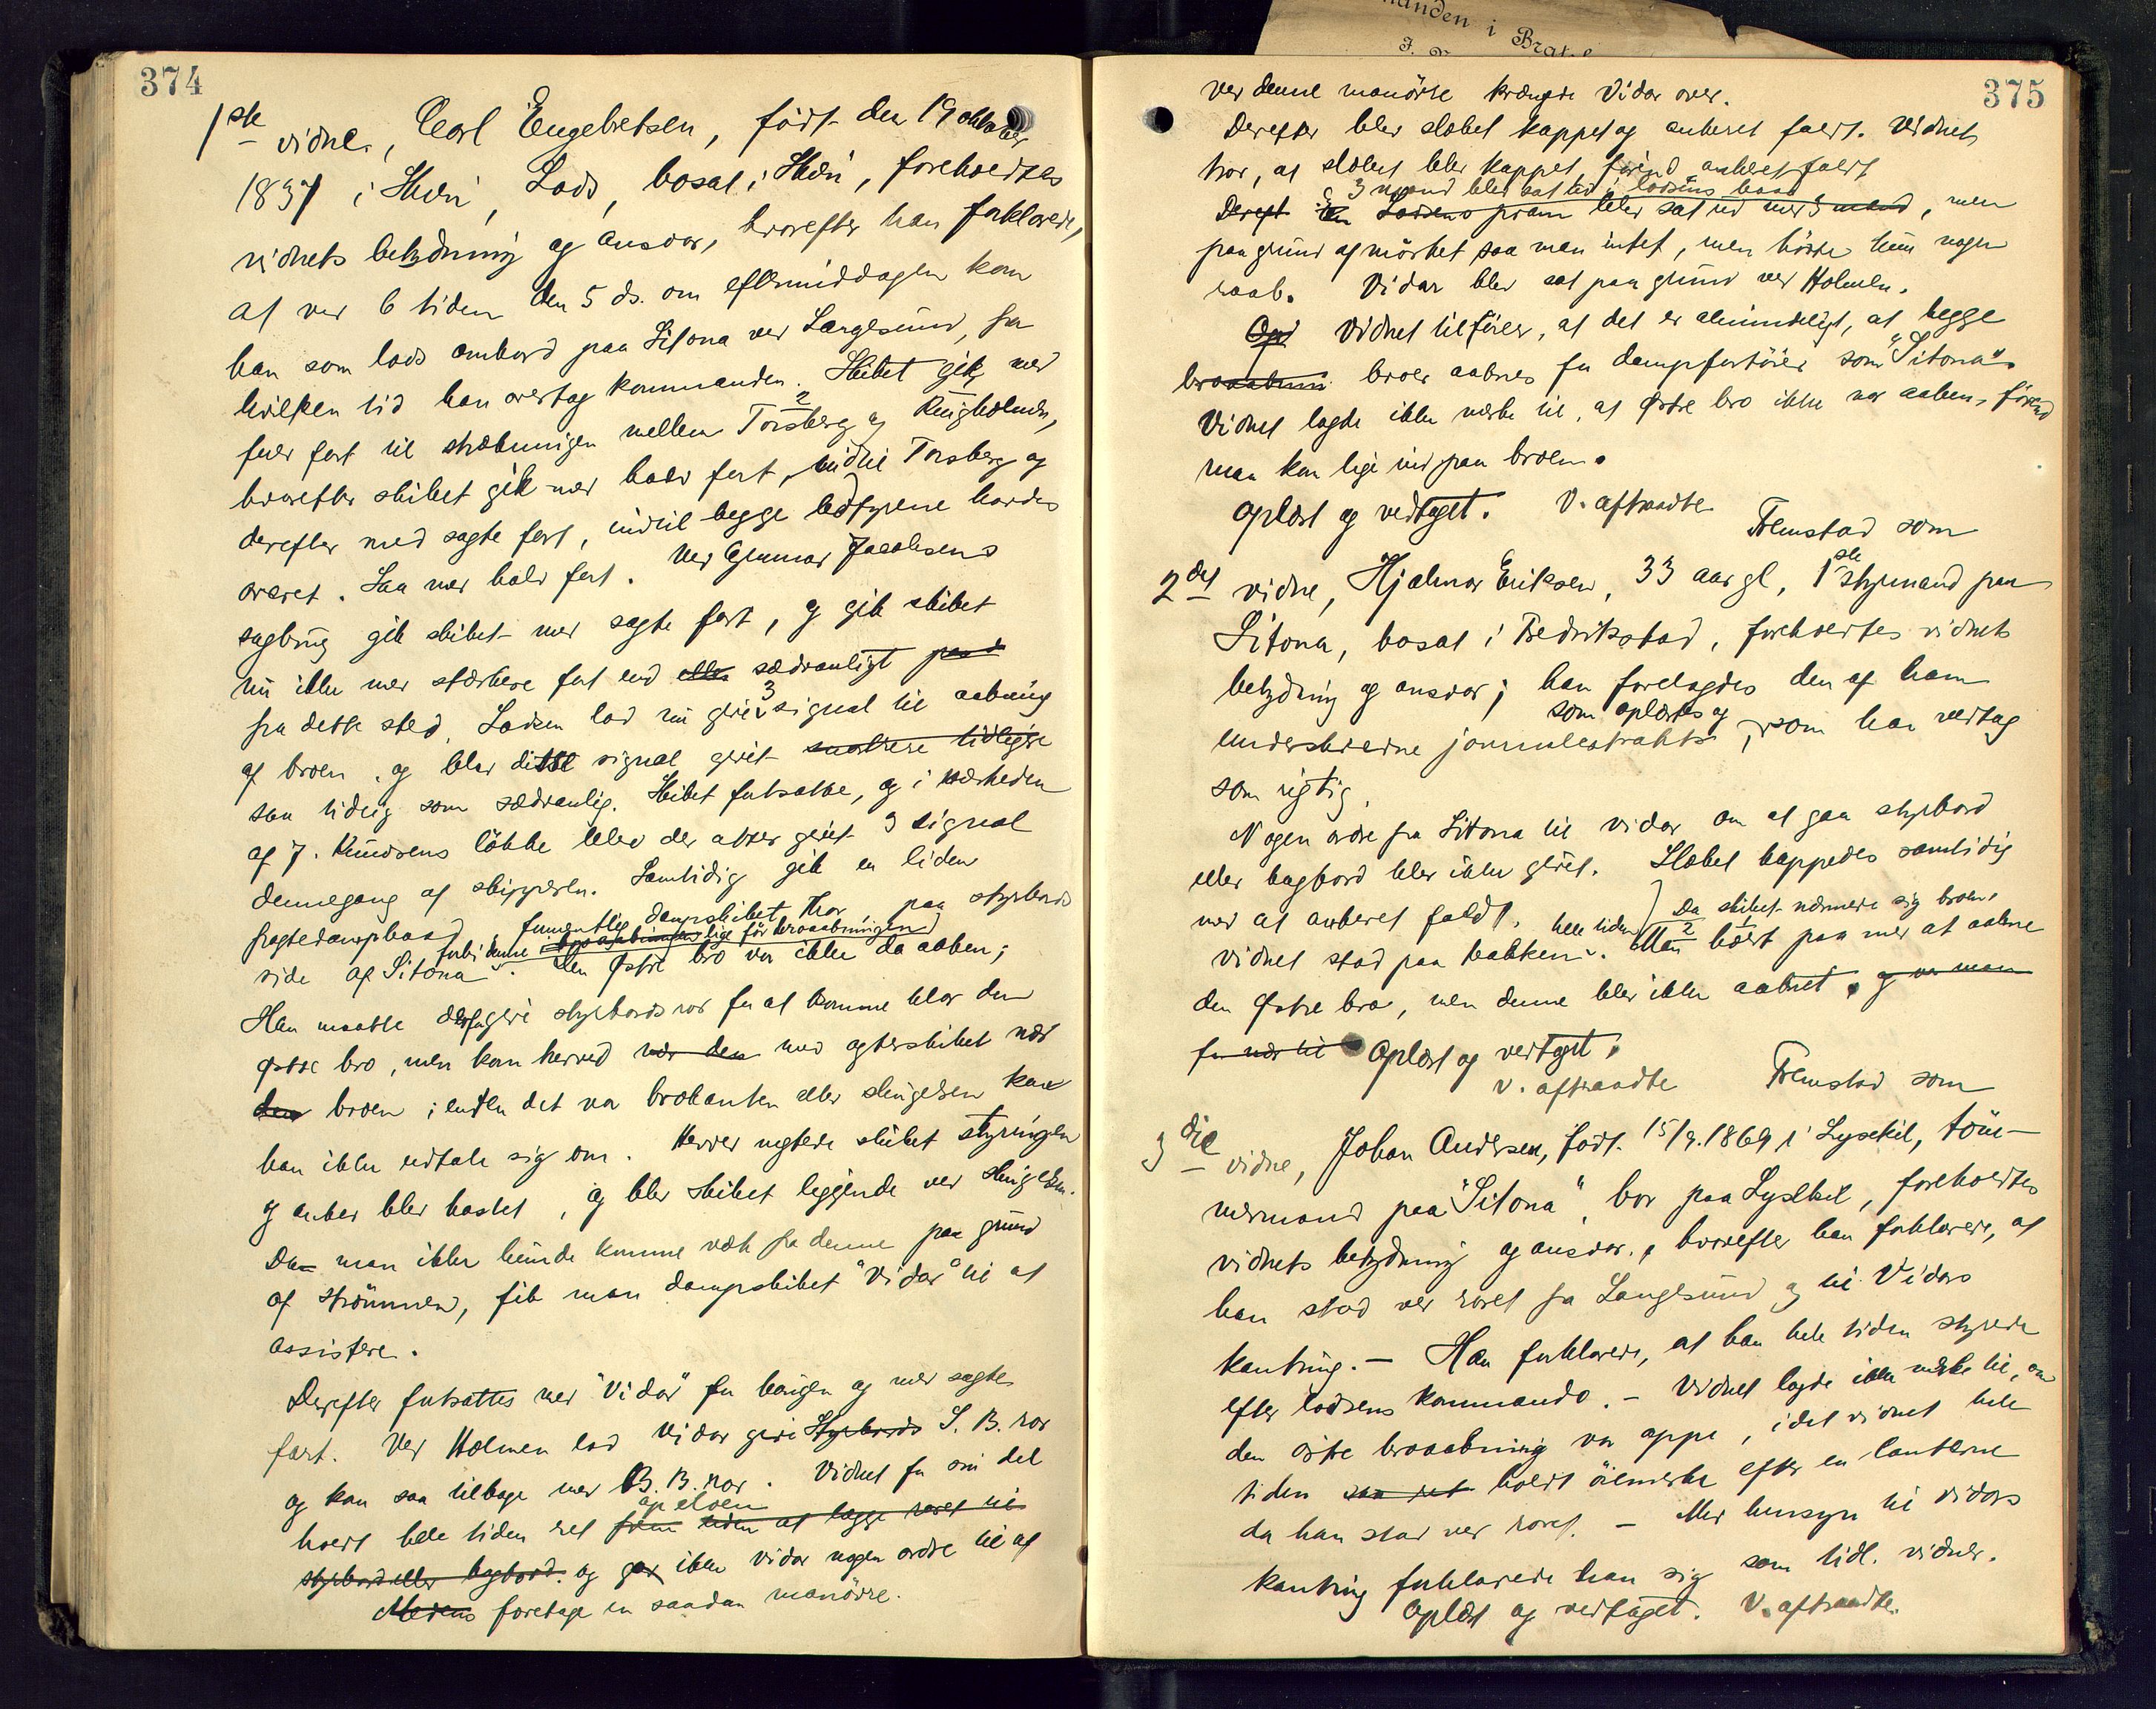 374
1ste vidne, Carl Engebretsen, födt den 19 oktober
1837 i Skien, Lods, bosat i Skien, foreholdtes
vidnets betydning og ansvar, hvorefter han forklarede,
at ved 6 tiden den 5 ds. om eftermiddagen kom
han som lods ombord paa Sitona ved Langesund, fra
hvilken tid han overtog kommandoen. Skibet gik med
fuld fart til strækningen mellem Torsberg og Ringholmen,
hvorefter skibet gik med halv fart, indtil Torsberg og
derefter med sagte fart, indtil begge ledfyrene havdes
overet. Saa med halv fart. Ved Gunnar Jacobsens
sagbrug gik skibet med sagte fart, og gik skibet
nu ikke med stærkere fart end eller sædvanligt
fra dette sted. Lodsen lod nu give 3 signal til aabning
af broen, og blev dette signal givet snarere tidligere
saa tidlig som sædvanlig. Skibet fortsatte, og i nærheden
af J. Knudsens lökke blev der atter givet 3 signal
dennegang af skipperen. Samtidig gik en liden
fragtedampbaad, formentlig dampskibet Thor paa styrbords
forbi denne lige för broaabningen
side af Sitona. Den Østre bro var ikke da aaben;
Han maatte derfor give styrbords ror for at komme klar den
Østre bro, men kom herved nær den med agterskibet nær
den broen; enten det var brokanten eller slengelsen kan
han ikke udtale sig om. Herved negtede skibet styringen
og anker blev kastet, og blev skibet liggende ved slengelsen.
Da man ikke kunde komme væk fra denne paa grund
af strömmen, fik man dampskibet "Vidar" til at
assistere.
Derefter fortsattes med "Vidar" for bougen og med sagte
fart. Ved Holmen lod Vidar give Styrbords S. B. ror
og kom saa tilbage med B. B. ror. Vidnet for sin del
op elven
hold hele tiden ret frem uden at lægge roret til
styrbord eller bagbord. og gav ikke Vidar nogen ordre til at
Medens foretage en saadan manövre.
375
Ved denne manövre krængede Vidar over.
Derefter blev slæbet kappet og ankeret faldt. Vidnet
tror, at slæbet blev kappet, förend ankeret faldt
3 mand blev sat ud i lodsens baad
Dereft En Lodsens pram blev sat ud med 3 mand, men
paa grund af mörket saa man intet, men hörte kun nogen
raab. Vidar blev sat paa grund ved Holmen.
Opl Vidnet tilföier, at det er almindeligt, at begge
broaabnin broer aabnes for dampfartöier som "Sitona".
Vidnet lagde ikke mærke til, at Østre bro ikke var aaben, förend
man kom lige ind paa broen.
Oplæst og vedtaget. V. aftraadte
Fremstod som
2det vidne, Hjalmar Eriksen, 33 aar gl, 1ste styrmand paa
Sitona, bosat i Fredrikstad, foreholdtes vidnets
betydning og ansvar; han forelagdes den af ham
som oplæstes og
underskrevne journalextrakt, som han vedtog
som rigtig.
Nogen ordre fra Sitona til Vidar om at gaa styrbord
eller bagbord blev ikke givet. Slæbet kappedes samtidig
med at ankeret faldt. Da skibet nærmede sig broen,
hele tiden
vidnet stod paa bakken. Man holdt paa med at aabne
den Østre bro, men denne blev ikke aabnet, og var man
for nær til Oplæst og vedtaget.
V. aftraadte Fremstod som
3die vidne, Johan Andersen, födt 15/9. 1869 i Lysekil, töm-
mermand paa "Sitona", bor paa Lysekil, foreholdtes
vidnets betydning og ansvar, hvorefter han forklarede, at
han stod ved roret fra Langesund og til Vidars
kantring. — Han forklarede, at han hele tiden styrede
efter lodsens kommando. — Vidnet lagde ikke mærke til, om
den østre broaabning var oppe, idet vidnet hele
tiden saa ret holdt öiemerke efter en lanterne
da han stod ved roret. — Med hensyn til Vidars
kantring forklarede han sig som tidl. vidner.
Oplæst og vedtaget. V. aftraadte.